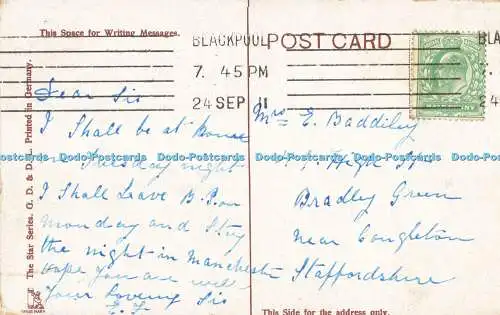 This Space for Writing Messages.
POST CARD
BLACKPOOL
7. 45 PM
24 SEP 11
BLA
24
The Star Series. G. D. & D. L. Printed in Germany.
Dear Sis
I Shall be at home
on Tuesday night
I Shall Leave B.P. on
monday and Stay
the night in Manchester
hope you are well
Your Loving Sis
Mrs E. Baddiley
High St
Bradley Green
near Congleton
Staffordshire
This Side for the address only.
Dodo-Postcards Dodo-Postcards Dodo-Postcards Dodo-Postcards Dodo-Postcards